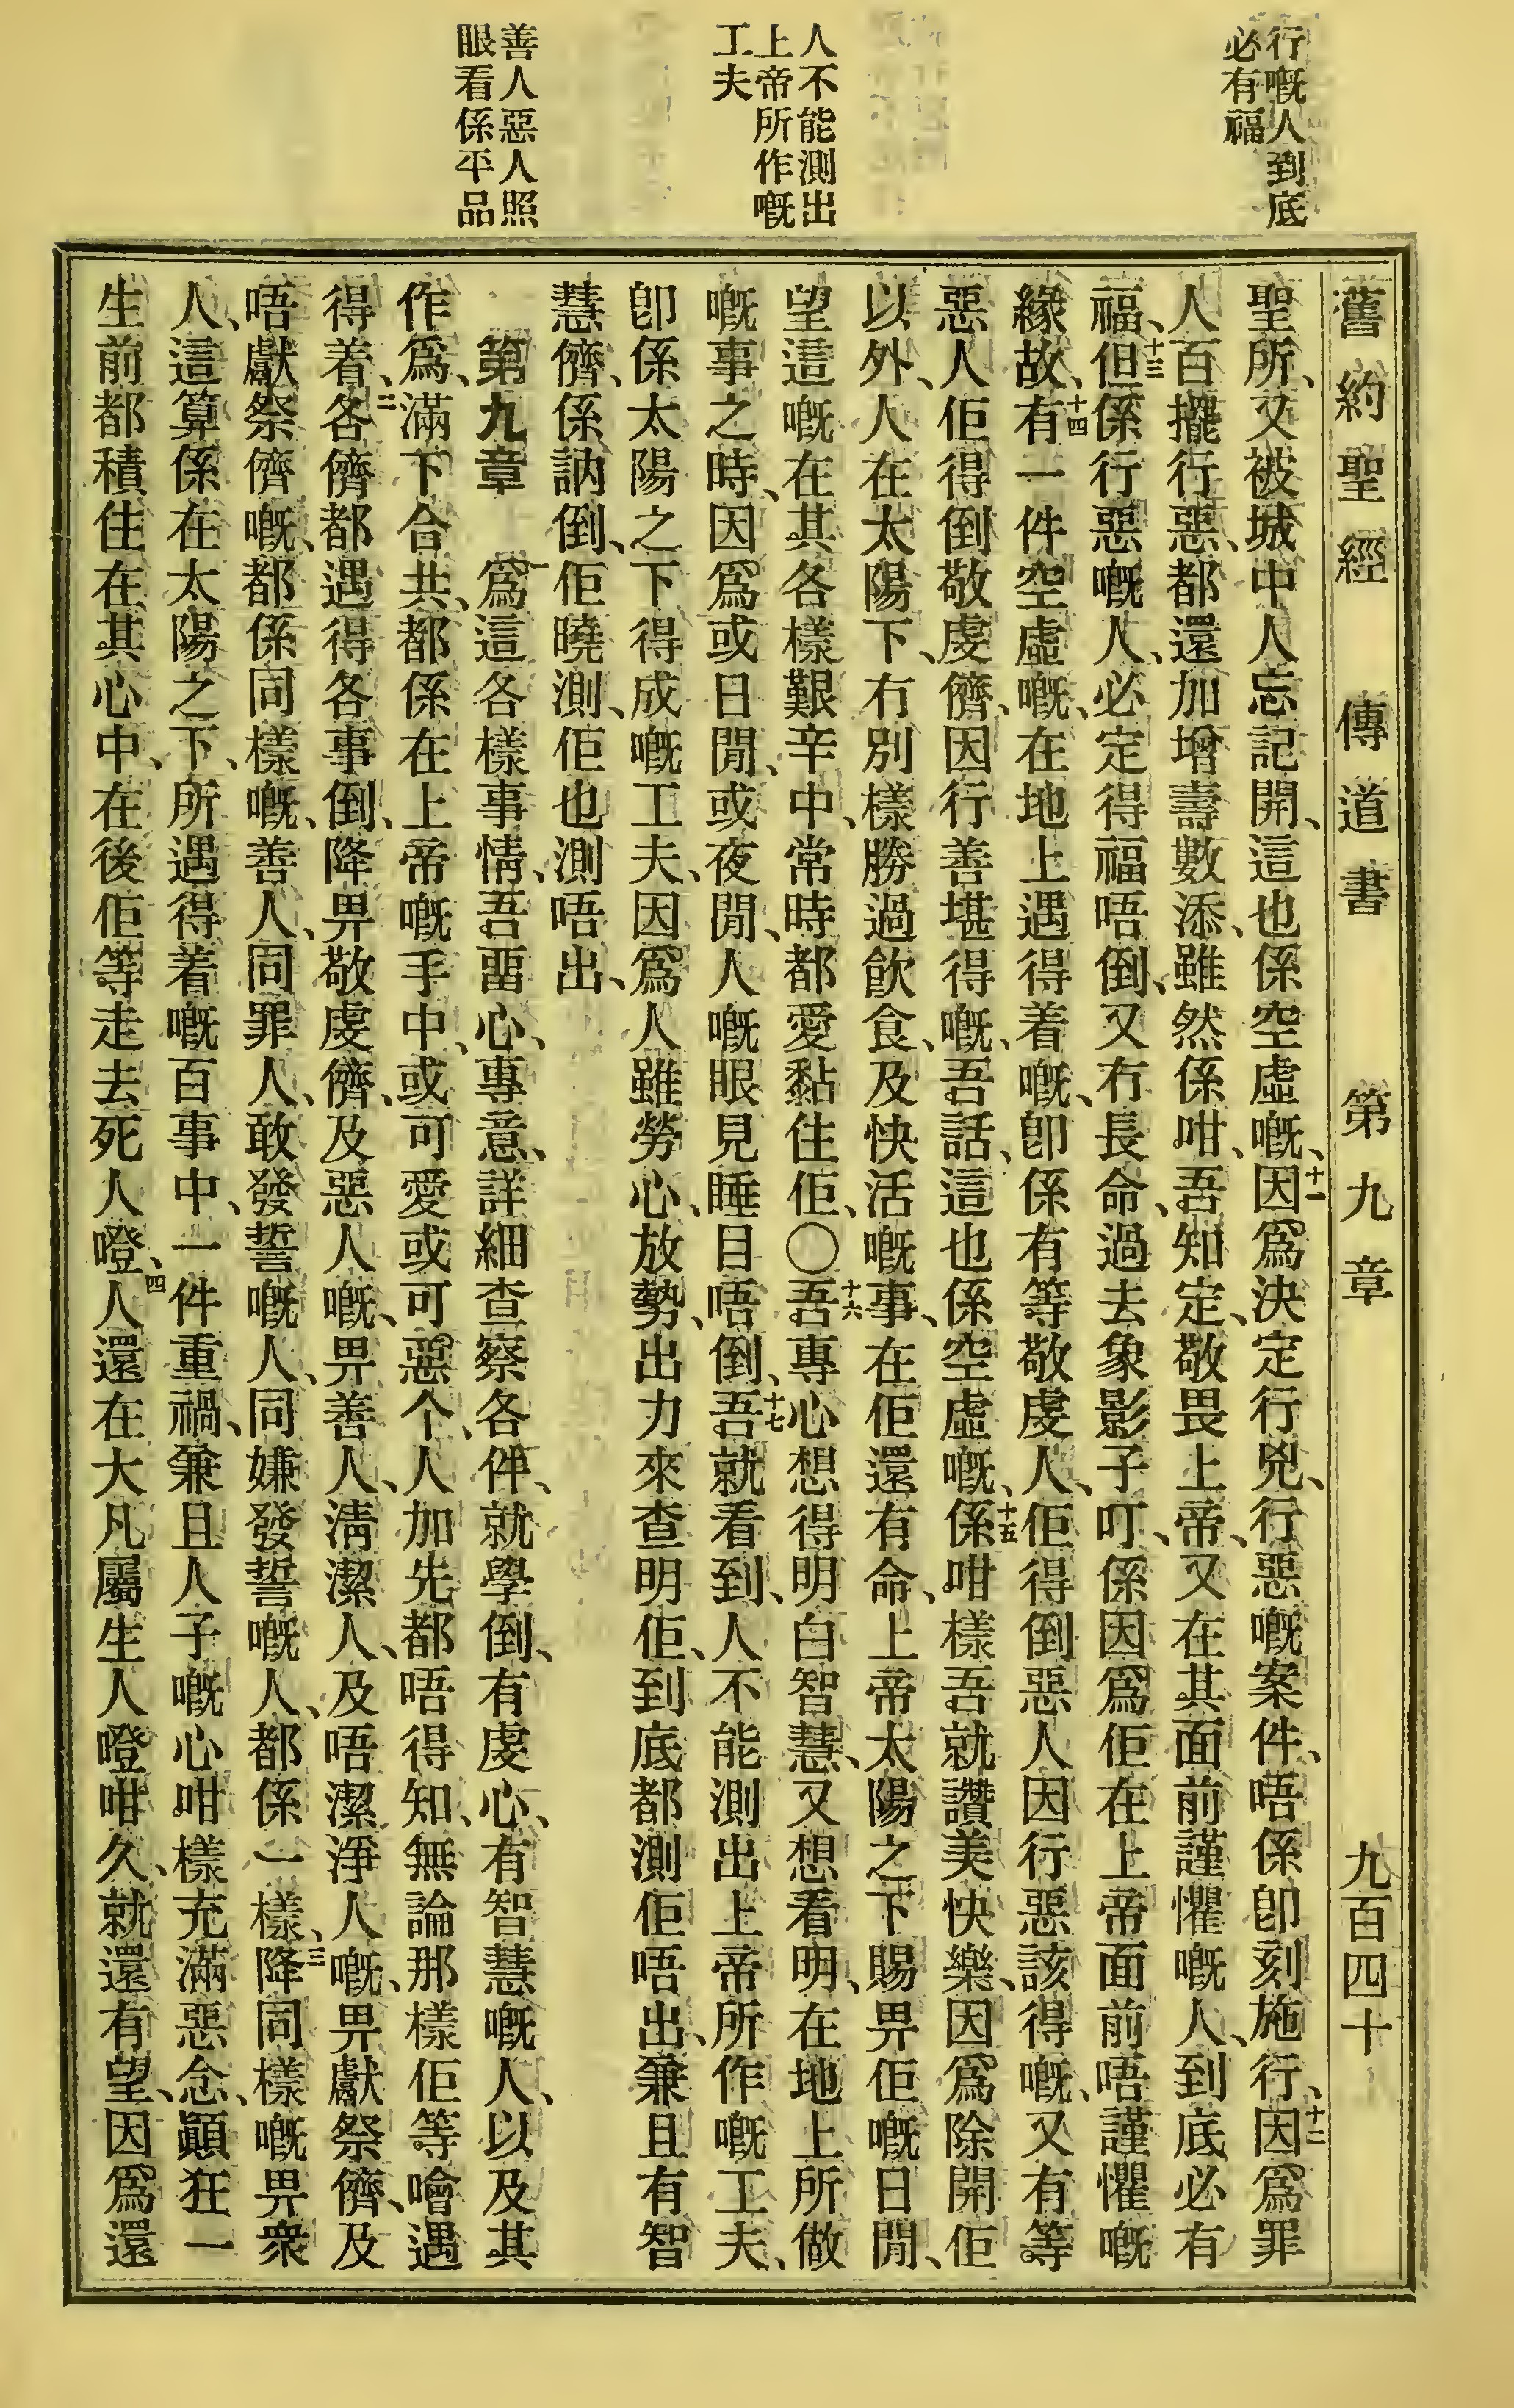 行嘅人到底
必有福
人不能測出
上帝所作嘅
工夫
善人惡人照
眼看係平品
舊約聖經 傳道書 第九章 九百四十
聖所、又被城中人忘記開、這也係空虛嘅、十一因爲決定行兇、行惡嘅案件、唔係卽刻施行、十二因爲罪
人百擺行惡、都還加增壽數添、雖然係咁、吾知定、敬畏上帝、又在其面前謹懼嘅人、到底必有
福、十三但係行惡嘅人、必定得福唔倒、又冇長命、過去象影子叮、係因爲佢在上帝面前唔謹懼嘅
緣故、十四有一件空虛嘅、在地上遇得着嘅、卽係有等敬虔人、佢得倒惡人因行惡該得嘅、又有等
惡人佢得倒敬虔儕、因行善堪得嘅、吾話、這也係空虛嘅、十五係咁樣吾就讚美快樂、因爲除開佢
以外、人在太陽下、冇別樣勝過飮食、及快活嘅事、在佢還有命、上帝太陽之下賜畀佢嘅日閒、
望這嘅在其各樣艱辛中、常時都愛黏住佢、〇十六吾專心想得明白智慧、又想看明、在地上所做
嘅事之時、因爲或日閒、或夜閒、人嘅眼見睡目唔倒、十七吾就看到、人不能測出上帝所作嘅工夫、
卽係太陽之下得成嘅工夫、因爲人雖勞心、放勢、出力來查明佢、到底都測佢唔出、兼且有智
慧儕、係訥倒、佢曉測、佢也測唔出、
第九章 一爲這各樣事情、吾畱心、專意、詳細查察各件、就學倒、有虔心、有智慧嘅人、以及其
作爲、滿下合共、都係在上帝嘅手中、或可愛或可惡个、人加先都唔得知、無論那樣佢等噲遇
得着、二各儕都遇得各事倒、降畀敬虔儕、及惡人嘅、畀善人、淸潔人、及唔潔淨人嘅、畀獻祭儕、及
唔獻祭儕嘅、都係同樣嘅、善人、同罪人、敢發誓嘅人、同嫌發誓嘅人、都係一樣、三降同樣嘅畀衆
人、這算係在太陽之下、所遇得着嘅百事中、一件重禍、兼且人子嘅心咁樣充滿惡念、顚狂一
生前都積住在其心中、在後佢等走去死人噔、四人還在大凡屬生人噔咁久、就還有望、因爲還